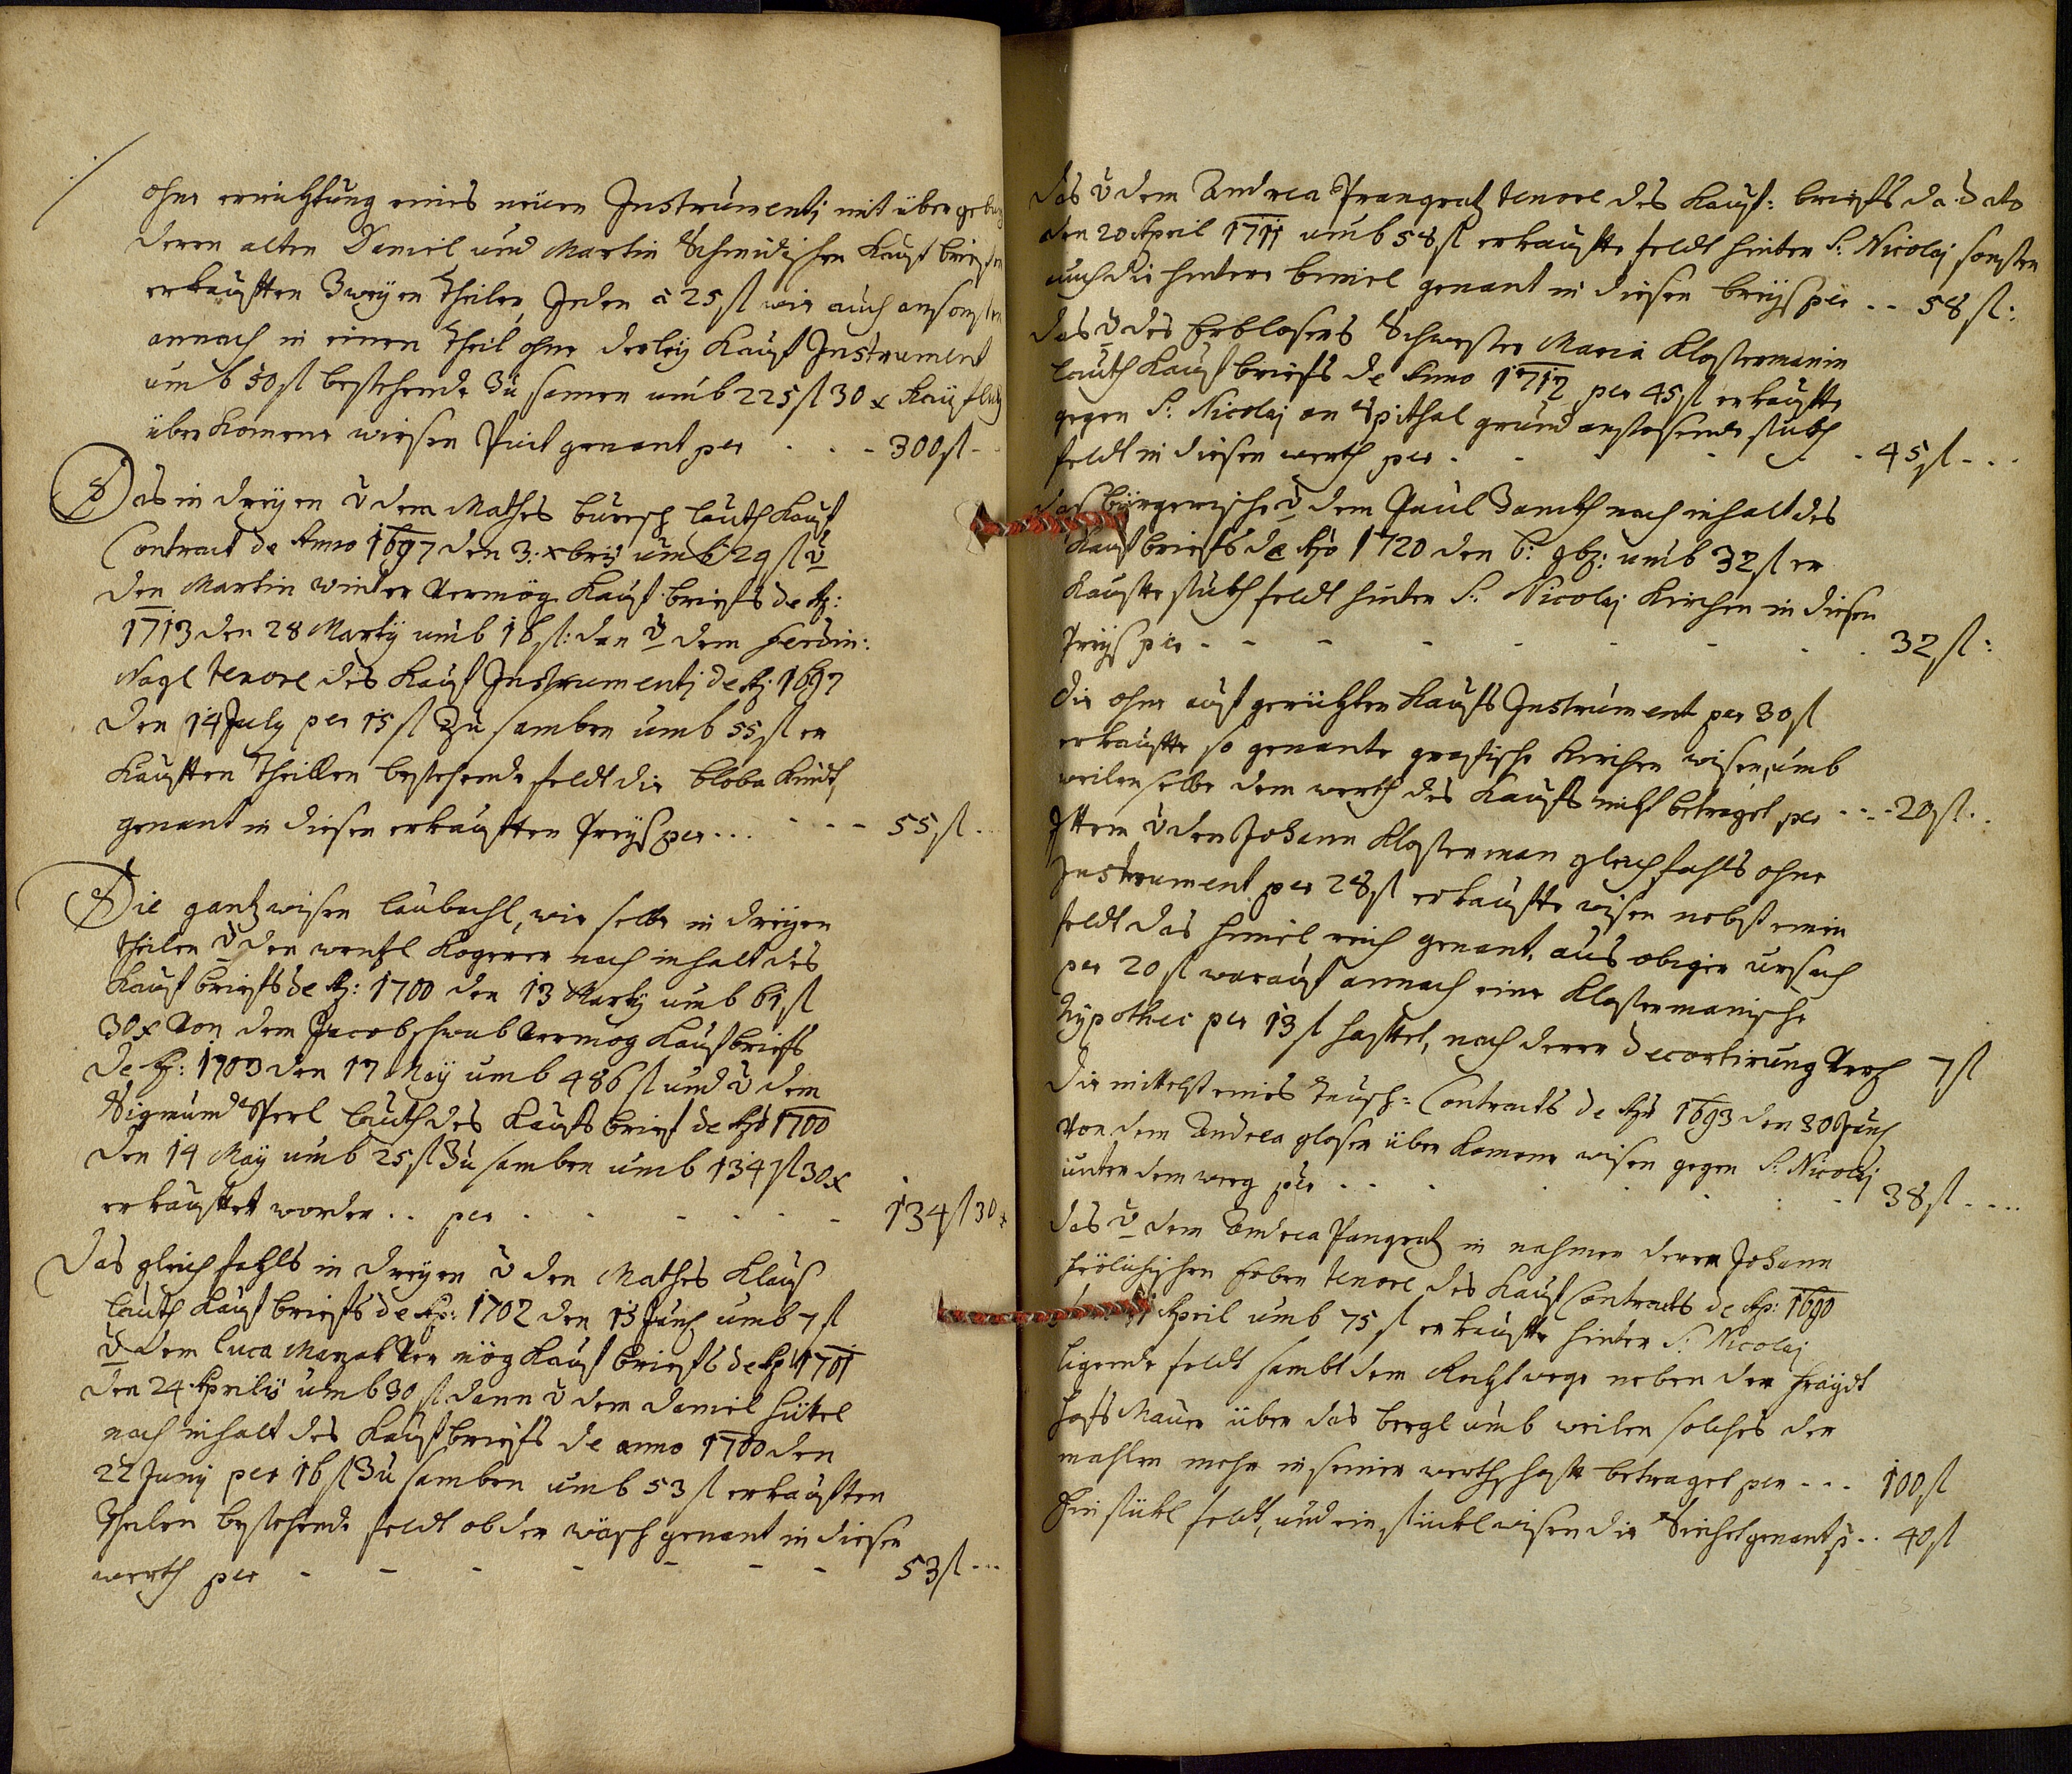 ohne errichtung eines neüen Instrumenti mit übergebung
deren alten Daniel und Martin Schmidischen Kauf briefen
erkaufften Zweyen Theilen, Jeden à 25 fl wie auch ansonsten
annach in einen Theil ohne derley Kauf Instrument
umb 50 fl bestehende Zu samen umb 225 fl 30 x Kaüflich
überkomene wiesen genant per - - - 300 fl - -
Das in dreyen v dem Mathes buresch lauth Kauf
Contract de Anno 1697 den 3: xbris umb 24 fl v
den Martin winter Vermög Kauf briefs de Ao:
1713 den 28 Marty umb 16 fl: dan v dem Ferdin:
Nagl tenore des Kauf Instrumenti de Ao. 1697
den 14 July per 15 fl Zu samben umb 55 fl er
kaufften Theillen bestehende feldt die genandt
genant in diesen erkaufften Preyß per - - - - - 55 fl - -
Die gantz wisen laubachl, wie selbe in dreyen
theilen v den wentzl Kogerer nach inhalt des
Kauf briefs de Ao: 1700 den 13 Marty umb 61 fl
30 x Von dem Jacob schwab Vermög Kaufbriefs
de Ao: 1703 den 17 May umb 48 fl und v dem
Sigmund Perl lauth des Kaufs brief de Ao 1700
den 14 May umb 25 fl Zu samben umb 134 fl 30 x
erkauffet worden .. per - - - - - 134 fl 30 x
das gleichfahls in dreyen v den Mathes Klauß
lauth Kauf briefs de Ao: 1702 den 15 Juny umb 7 fl
v dem Luca Ver mög Kauf briefs de Ao 1701
den 24 Aprilis umb 30 fl dann v dem Daniel Hütel
nach inhalt des Kaufbriefs de anno 1700 den
22 Juny per 16 fl Zu samben umb 53 fl erkaufften
Theilen bestehende feldt ob der wäsch genant in diesen
werth per - - - - - - - 53 fl - - -
das v dem Andrea Prangratz tenore des Kauf: briefs da dato
den 20 April 1711 umb 58 fl erkauffte feldt hinter S: Nicolai sonsten
auch die hintere genant in diesen breyß per - - 58 fl:
das v des Erblosers Schwester Maria Klostermanin
lauth Kauf briefs de Anno 1712 per 45 fl erkauffte
gegen S: Nicolai an Spithal grund anstossende stukh
feldt in diesen werth per - - - - - 45 fl - - -
das bürgerische v dem Paul nach inhalt des
Kaufbriefs de Ao 1720 den 6: 9b: umb 32 fl er
kauffte stukh feldt hinter S: Nicolai Kirchen in diesen
Preyß per - - - - - - - 32 fl:
die ohne auf gerichten Kaufs Instrument per 30 fl
erkauffte so genante Kirchen wisen, umb
weilen selbe dem werth des Kaufs nicht betraget per - - - 20 fl - -
Ittem v den Johann Klosterman gleichfahls ohne
Instrument per 28 fl erkauffte wisen nebst einen
feldt das himel reich genant, aus obiger ursach
per 20 fl worauf annach eine Klostermanische
hypothec per 13 fl hafftet, nach deren decortirung 7 fl
die mittelst eines tausch: Contracts de Ao 1693 den 30 Juny
Von dem Andrea gloser über komene wisen gegen S: Nicolai
unter dem weeg per - - - - - - 38 fl - - - -
das v dem Andrea Pangratz in nahmen deren Johann
frölichischen Erben tenore des Kauf Contracts de Ao: 1690
April umb 75 fl erkauffte hinter S: Nicolai
ligende feldt sambt dem neben der fraydt
hofs Mauer über das bergl umb weilen solches der
mahlen mehr in seiner werthschafft betraget per - - - 100 fl
Ein stükl feldt, und ein stükl wisen die genant p - - 40 fl